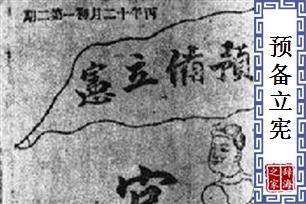 丙午十二月第一第二期
預備立憲
官
预备立宪
辞海
之家